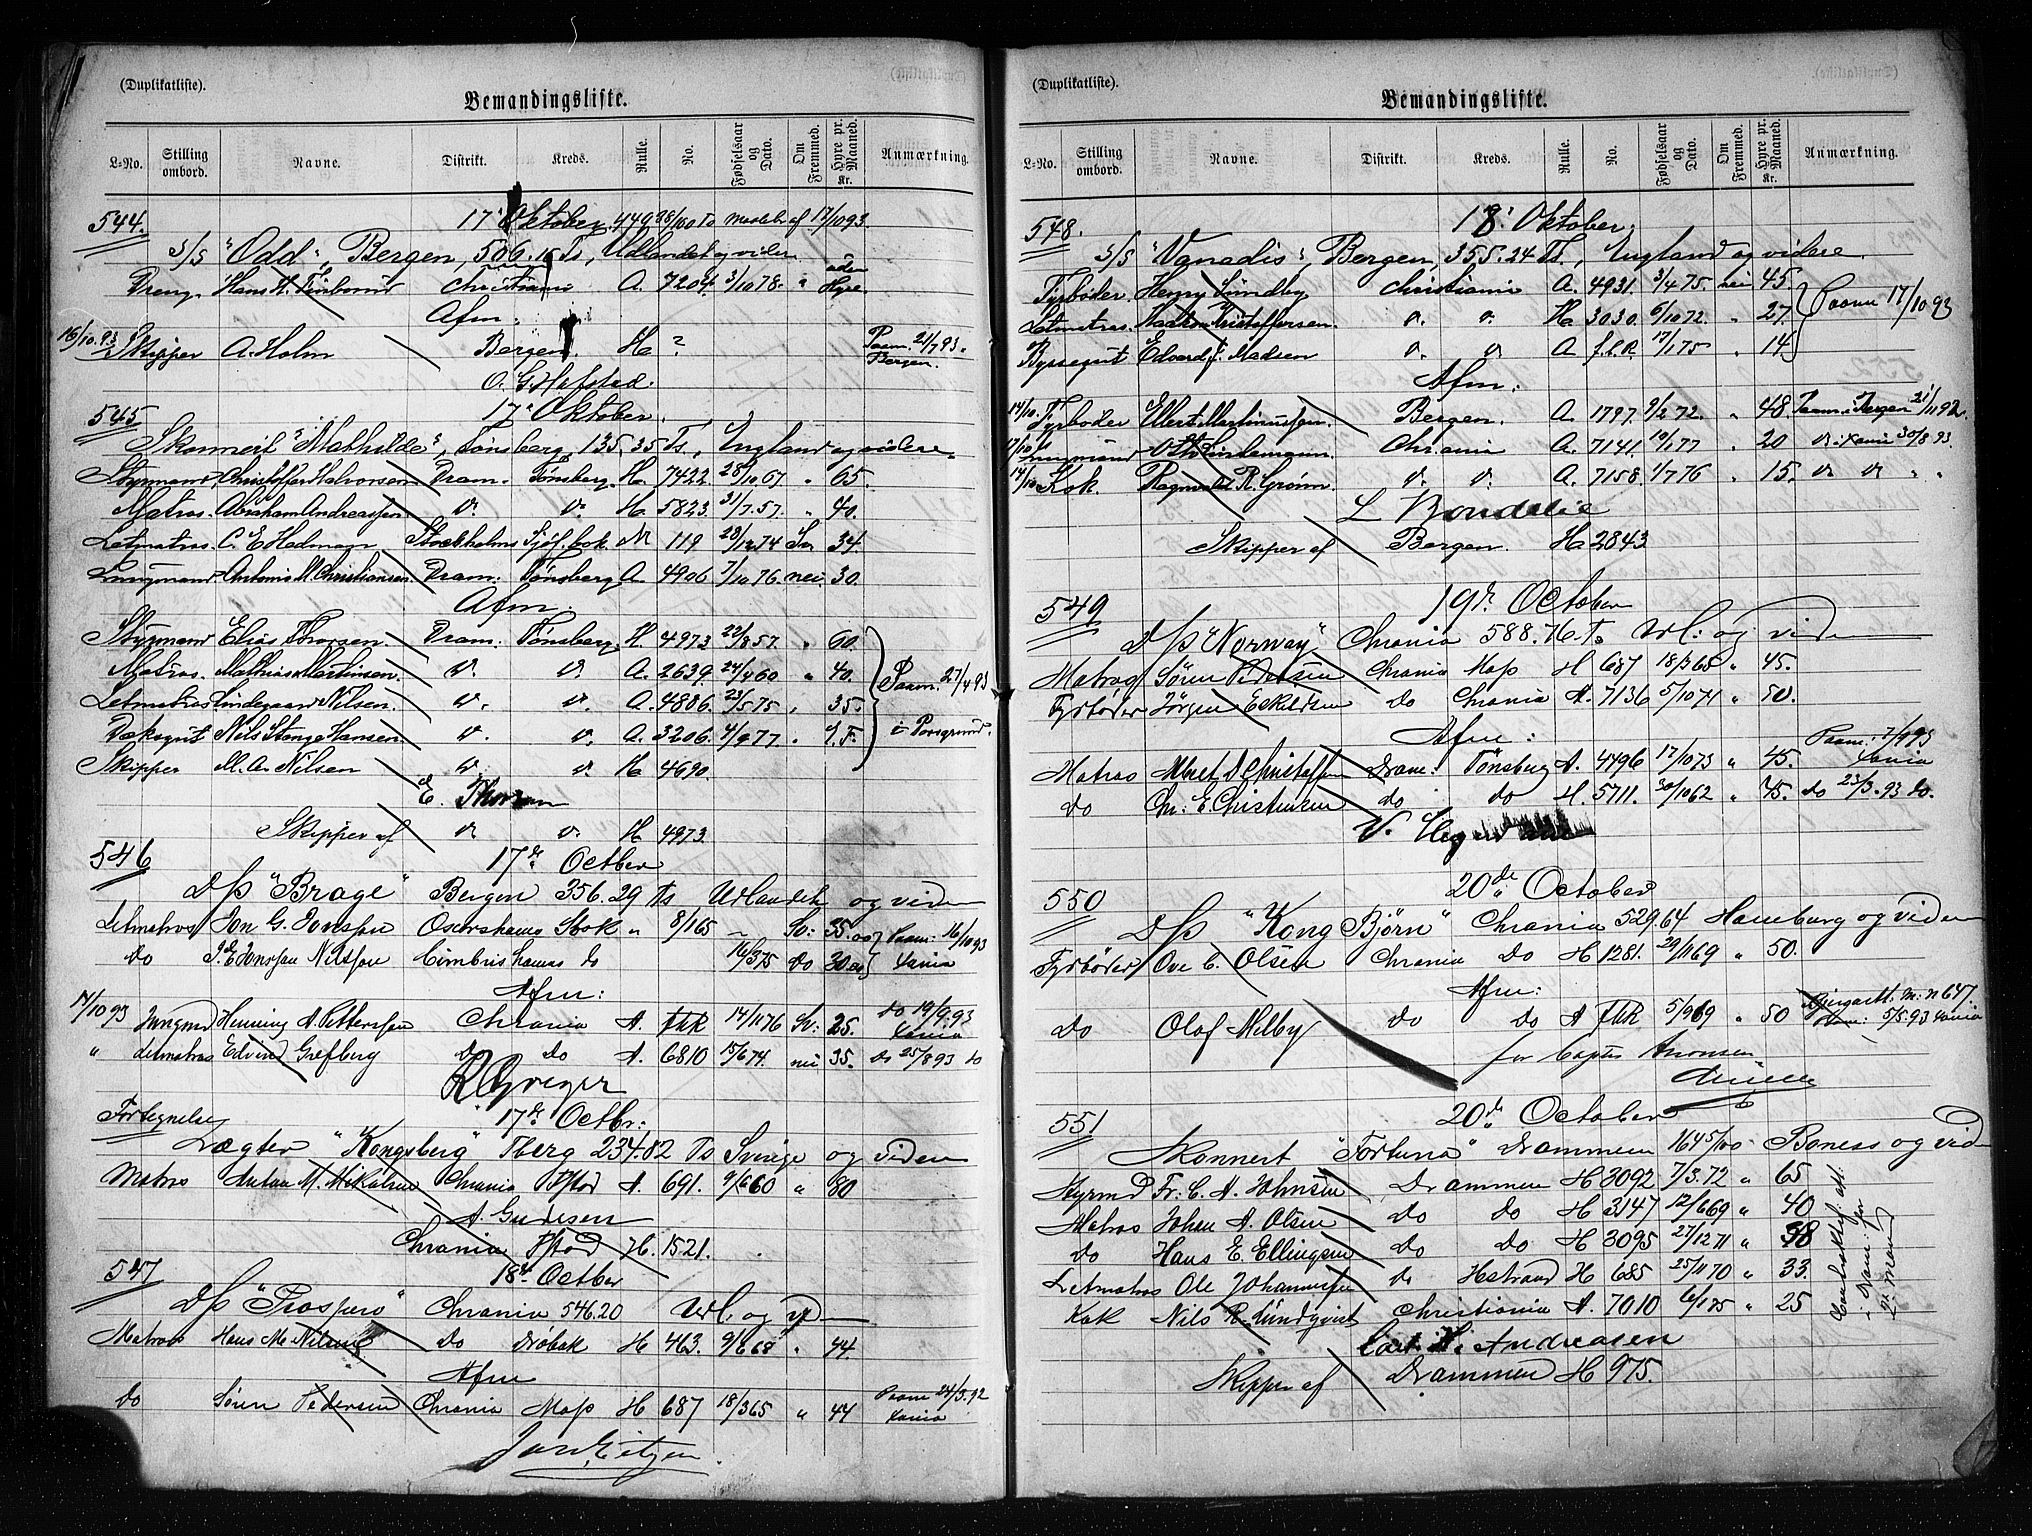 (Duplikatliste).
Bemandingsliste.
L-No. Stilling ombord. Navne. Distrikt. Kreds. Rulle. No. Fødselsaar og Dato. Om Fremmed. Hyre pr. Maaned. Kr. Anmærkning.
544. 17' Oktober, 449 88/100 Ts af 17/10 93.
S/S "Odd", Bergen, 506.15 Ts, Udlandet og videre
Dreng. Hans H. Christiania A. 7204. 3/10 78. " uden Hyre.
Afm.
16/10.93. Skipper A. Holm Bergen H ? Paam. 21/7 93. Bergen.
O. G. Hafstad.
545 17' Oktober.
Skonnert "Mathilde", Tønsberg, 135.35 Ts, England og videre.
Styrmand Christoffer Halvorsen Dram. Tønsberg. H. 7422 28/10 67 " 65.
Matros. Abraham Andreassen v. v. H 5823. 31/7.57. " 40.
Letmatros. C. E. Hedman Stockholms Sjöf. bok. M 119 28/12 74 Sv 34.
Jungmand Antonis M. Christiansen Dram: Tønsberg A. 4906 7/10 76. nei 30.
Afm.
Styrmand Elias Thorsen. Dram: Tønsberg. H. 4973 22/8 57. " 60.
Matros. Mathias Martinsen. v. v. A. 2639. 24/4 60 " 40. Paam. 27/4 93
Letmatros Lindegaard Nilsen. v. v. A. 4886. 23/5 75 , 35.
Dæksgut Nils Stange Hansen. v. v. A. 3206. 4/9 77. " 9.F. i Porsgrund.
Skipper M. A. Nilsen v v H 4690.
E. Thorsen
Skipper af v. v. H 4973.
546 17de Octber
D/S "Brage" Bergen 356.29 Ts Udlandet og viden
Letmatros Jon G. Jonsson Oscarshamn Stok " 8/1 65 Sv: 35.00 Paam: 16/10 93
do P. E. Jonsson Nilsson Cimbrishamns do 16/3 75 do 30.00 Xania
Afm:
14/10 93 Jungmd Henning A. Pettersson Chrania A. flk 14/11 76 Sv: 25. do 19/9.93 Xania
" Letmatros Edvind Grefberg do do A. 6810 15/6 74. nei 35. do 25/8 93 do
R Gregor
Fortegnelse 17de Octbr:
Lægter "Kongsberg" Tberg 234.82 Ts Sverige og viden
Matros Anton M. Mikalsen Chrania Fstad A. 691. 9/6 60 " 80
A. Gudesen
Chrania Fstad H. 1521.
547 18de Octber
D/S "Prospero" Chrania 546.20 Udl. og vid
Matros Hans M. Nilsen do Drøbak H 463. 9/6 68 " 44.
Afm
do Søren Pedersen Chrania Moss H 687 18/3 65 " 44 Paam 24/3.92 Xania
(Duplikatliste).
Bemandingsliste.
L-No. Stilling ombord. Navne. Distrikt. Kreds. Rulle. No. Fødselsaar og Dato. Om Fremmed. Hyre pr. Maaned. Kr. Anmærkning.
548. 18' Oktober.
S/S "Vanadis", Bergen, 355.24 Ts, England og videre.
Fyrbøder. Henry Sundby Christiania A. 4931. 3/4 75. nei 45.
Letmatros. Haakon Kristoffersen. v. v. H 3030. 6/10 72. " 27. Paam 17/10 93
Byssegut Edvard J. Madsen v. v. A f.l.R. 17/1 75 " 14
Afm:
14/10. Fyrbøder Ellert Martinussen. Bergen. A. 1797. 9/2 72. " 48. Paam. i Bergen 21/11 92.
17/10 Jungmand Otto Lindemann. Chrania A. 7141. 10/1 77 " 20 v. i Xania 30/8 93.
14/10 Kok. Ragnvald R. Grønn. v. v. A. 7158. 1/7 76 " 15. v. v. "
L Bondelie
Skipper af Bergen. H. 2843
549 19de October
D/S "Norway" Chrania 588.76 Ts Udl: og viden
Matros Søren Pedersen Chrania Moss H 687 18/3 65 " 45.
Fyrbøder Jörgen Eskildsen do Chrania A. 7136 5/10 74 " 50.
Afm:
Matros Albret D Christoffersen Dram: Tønsberg A. 4496 17/10 73 " 45. Paam: 7/9 93 Xania
do Chr: E. Christensen do do H. 5711. 30/10 62 " 45. do 23/3.93 do.
550 20de October
D/S "Kong Björn" Chrania 529.64 Hamburg og viden
Fyrbøder Ove C. Olsen Chrania do H 1281. 29/11 69 " 50.
Afm:
do Olaf Melby do do A flk 5/9 69 " 50 m: n 647. Paam: 5/5.93 Xania
for Captn Aronsen
551 20de October
Skonnert "Fortuna" Drammen 164 5/100 Boness og vid
Styrmd Fr. C. A. Johnsen Drammen H 3092 7/3.72 " 65
Matros Johan A. Olsen do do H 3147 12/6 69 " 40
do Hans E. Ellingsen do do H 3095 27/12 71 " 38
Letmatros Ole Johannessen do Hstrand H 685 25/11 70 " 33.
Kok Nils R. Lundqvist Christiania A. 7010 6/1 75 " 25
Contraktsf. aft. i Dram: for 2 Man
Carl H. Andreasen
Skipper af Drammen H 975.